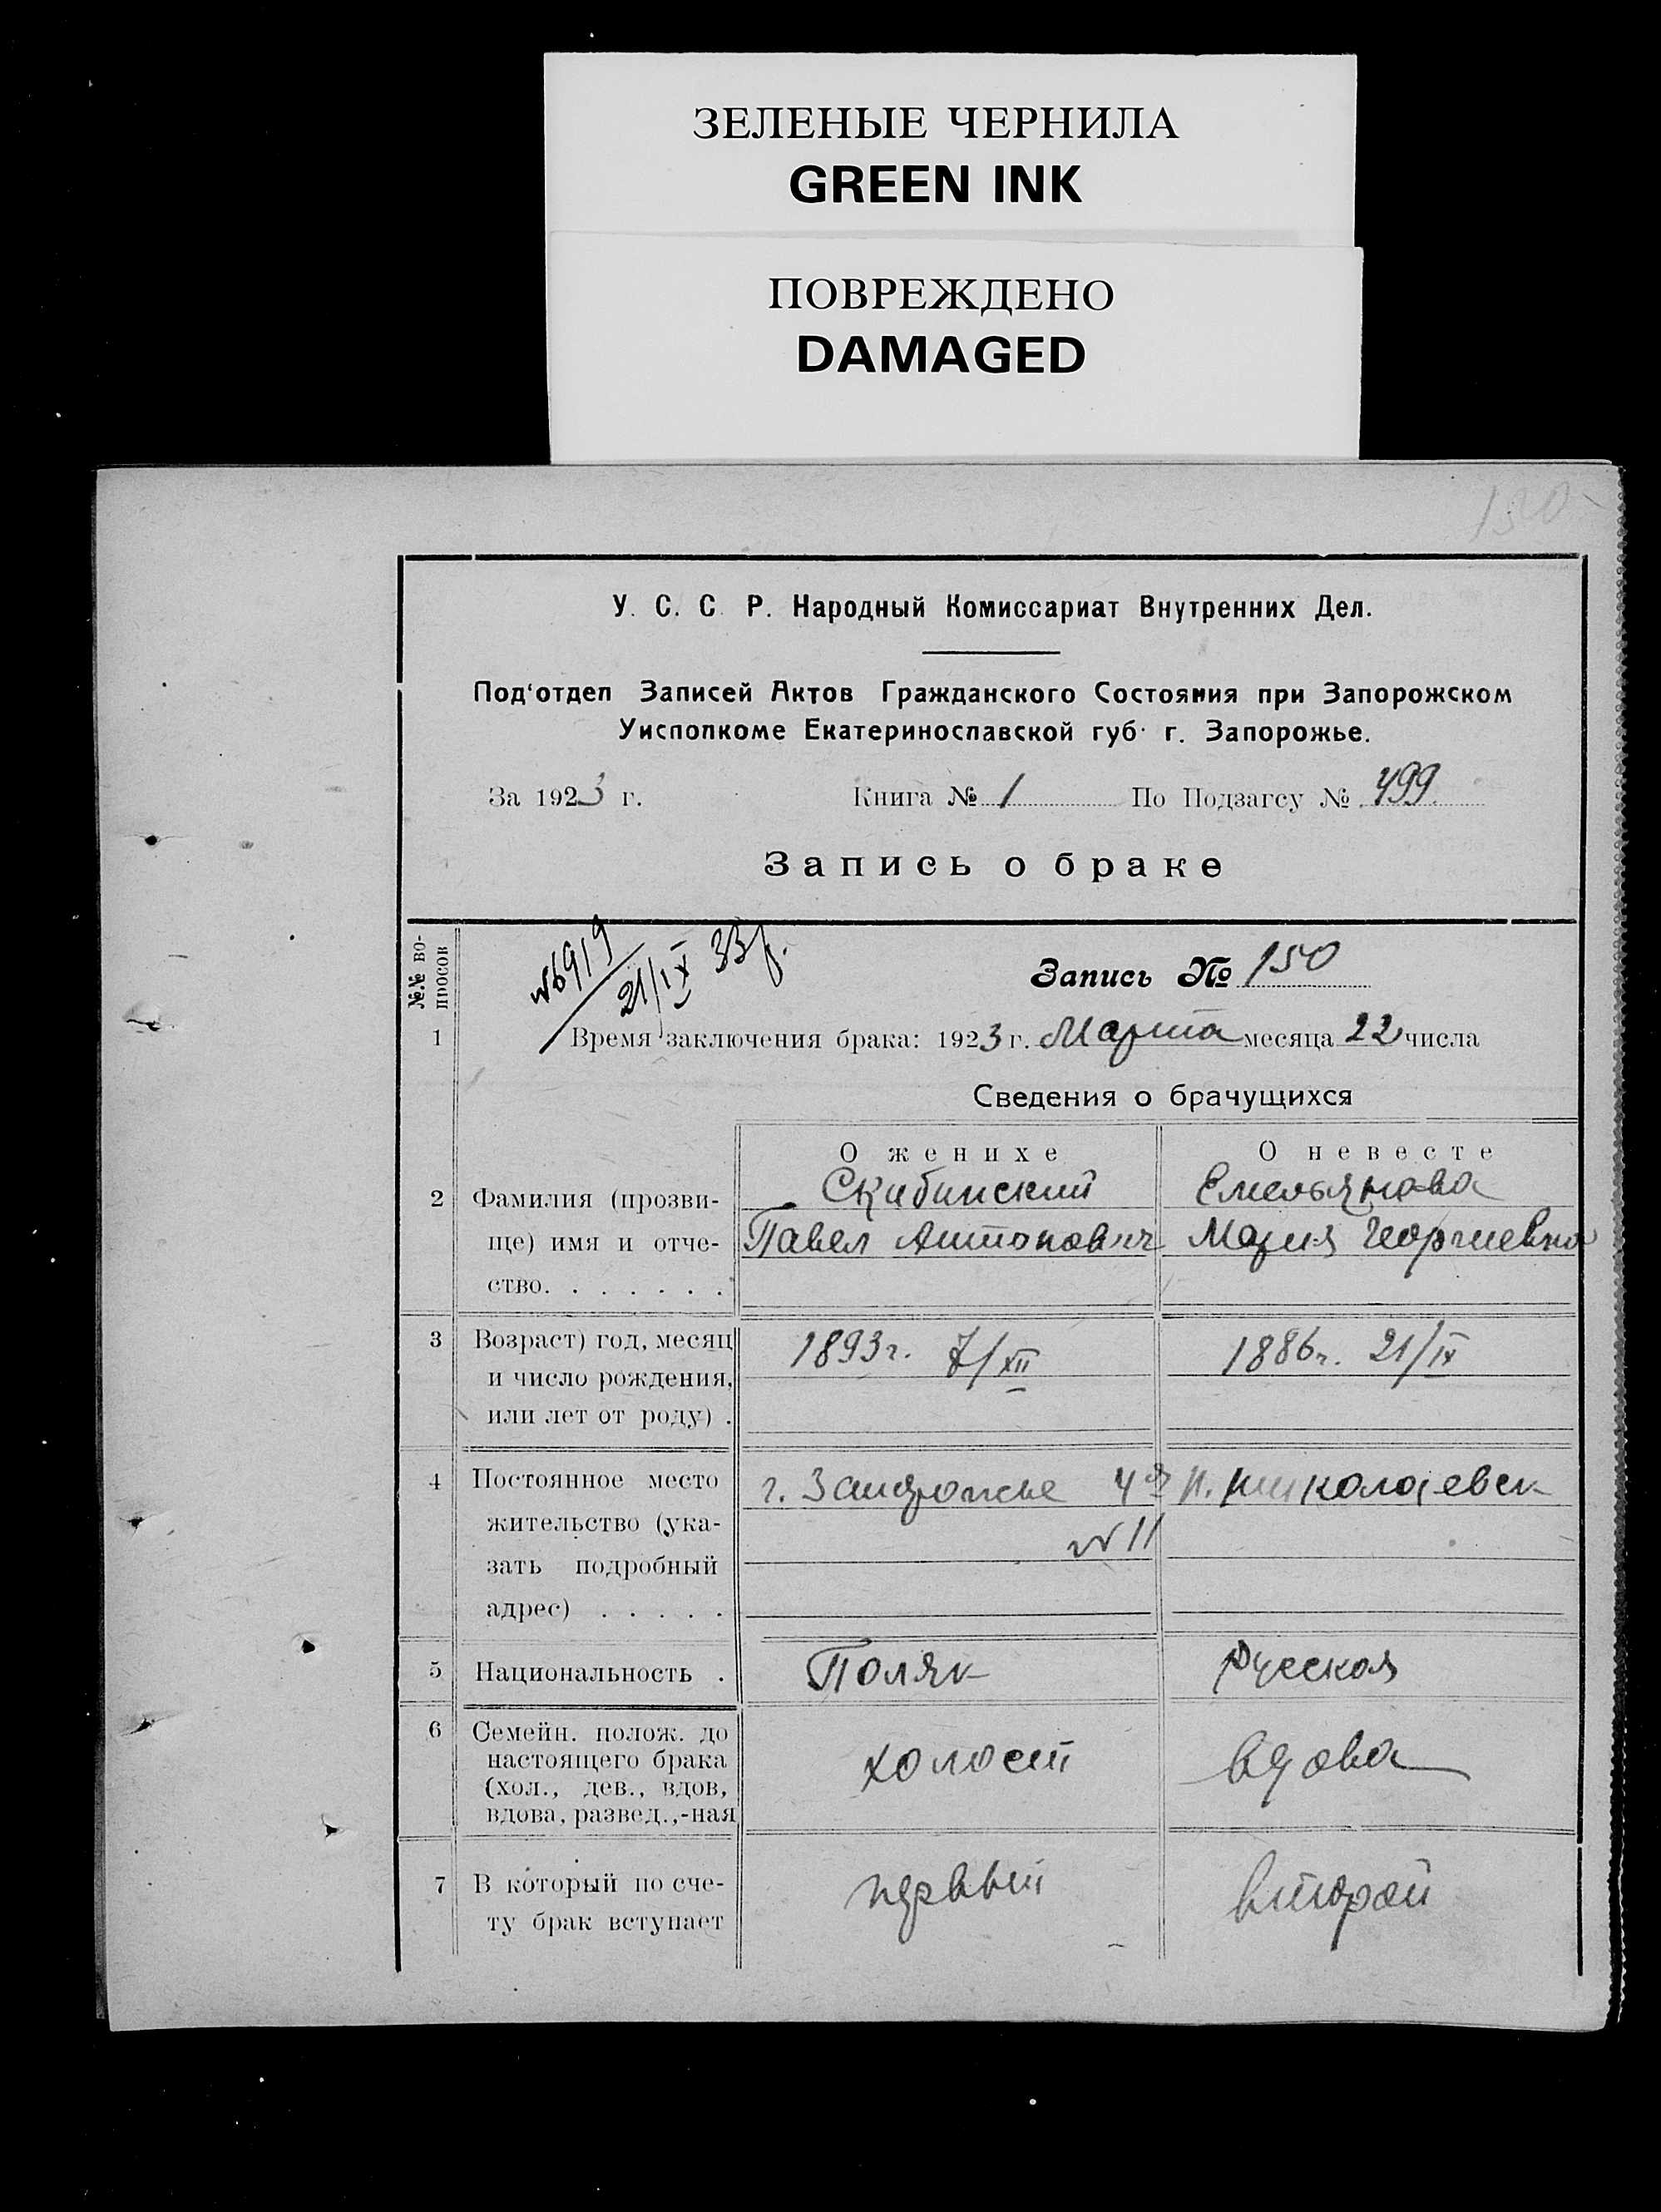 ЗЕЛЕНЫЕ ЧЕРНИЛА
GREEN INK
ПОВРЕЖДЕНО
DAMAGED
150
У. С. С. Р. Народный Комиссариат Внутренних Дел.
Под'отдел Записей Актов Гражданского Состояния при Запорожском
Уисполкоме Екатеринославской губ. г. Запорожье.
За 1923 г. Книга № 1 По Подзагсу № 499
Запись о браке
№№ во-
просов
№6919
21/IX 33 г.
Запись № 150
1 Время заключения брака: 1923 г. Марта месяца 22 числа
Сведения о брачущихся
О женихе О невесте
2 Фамилия (прозви- Скибинский Емельянова
ще) имя и отче- Павел Антонович Мария Георгиевна
ство. . . . . . .
3 Возраст) год, месяц 1893г. 7/XII 1886г. 21/IX
и число рождения,
или лет от роду) .
4 Постоянное место г. Запорожье 4я Н. Николаевск
жительство (ука- № 11
зать подробный
адрес) . . . . .
5 Национальность . Поляк Русская
6 Семейн. полож. до
настоящего брака холост вдова
(хол., дев., вдов,
вдова, развед.,-ная
7 В который по сче- первый второй
ту брак вступает